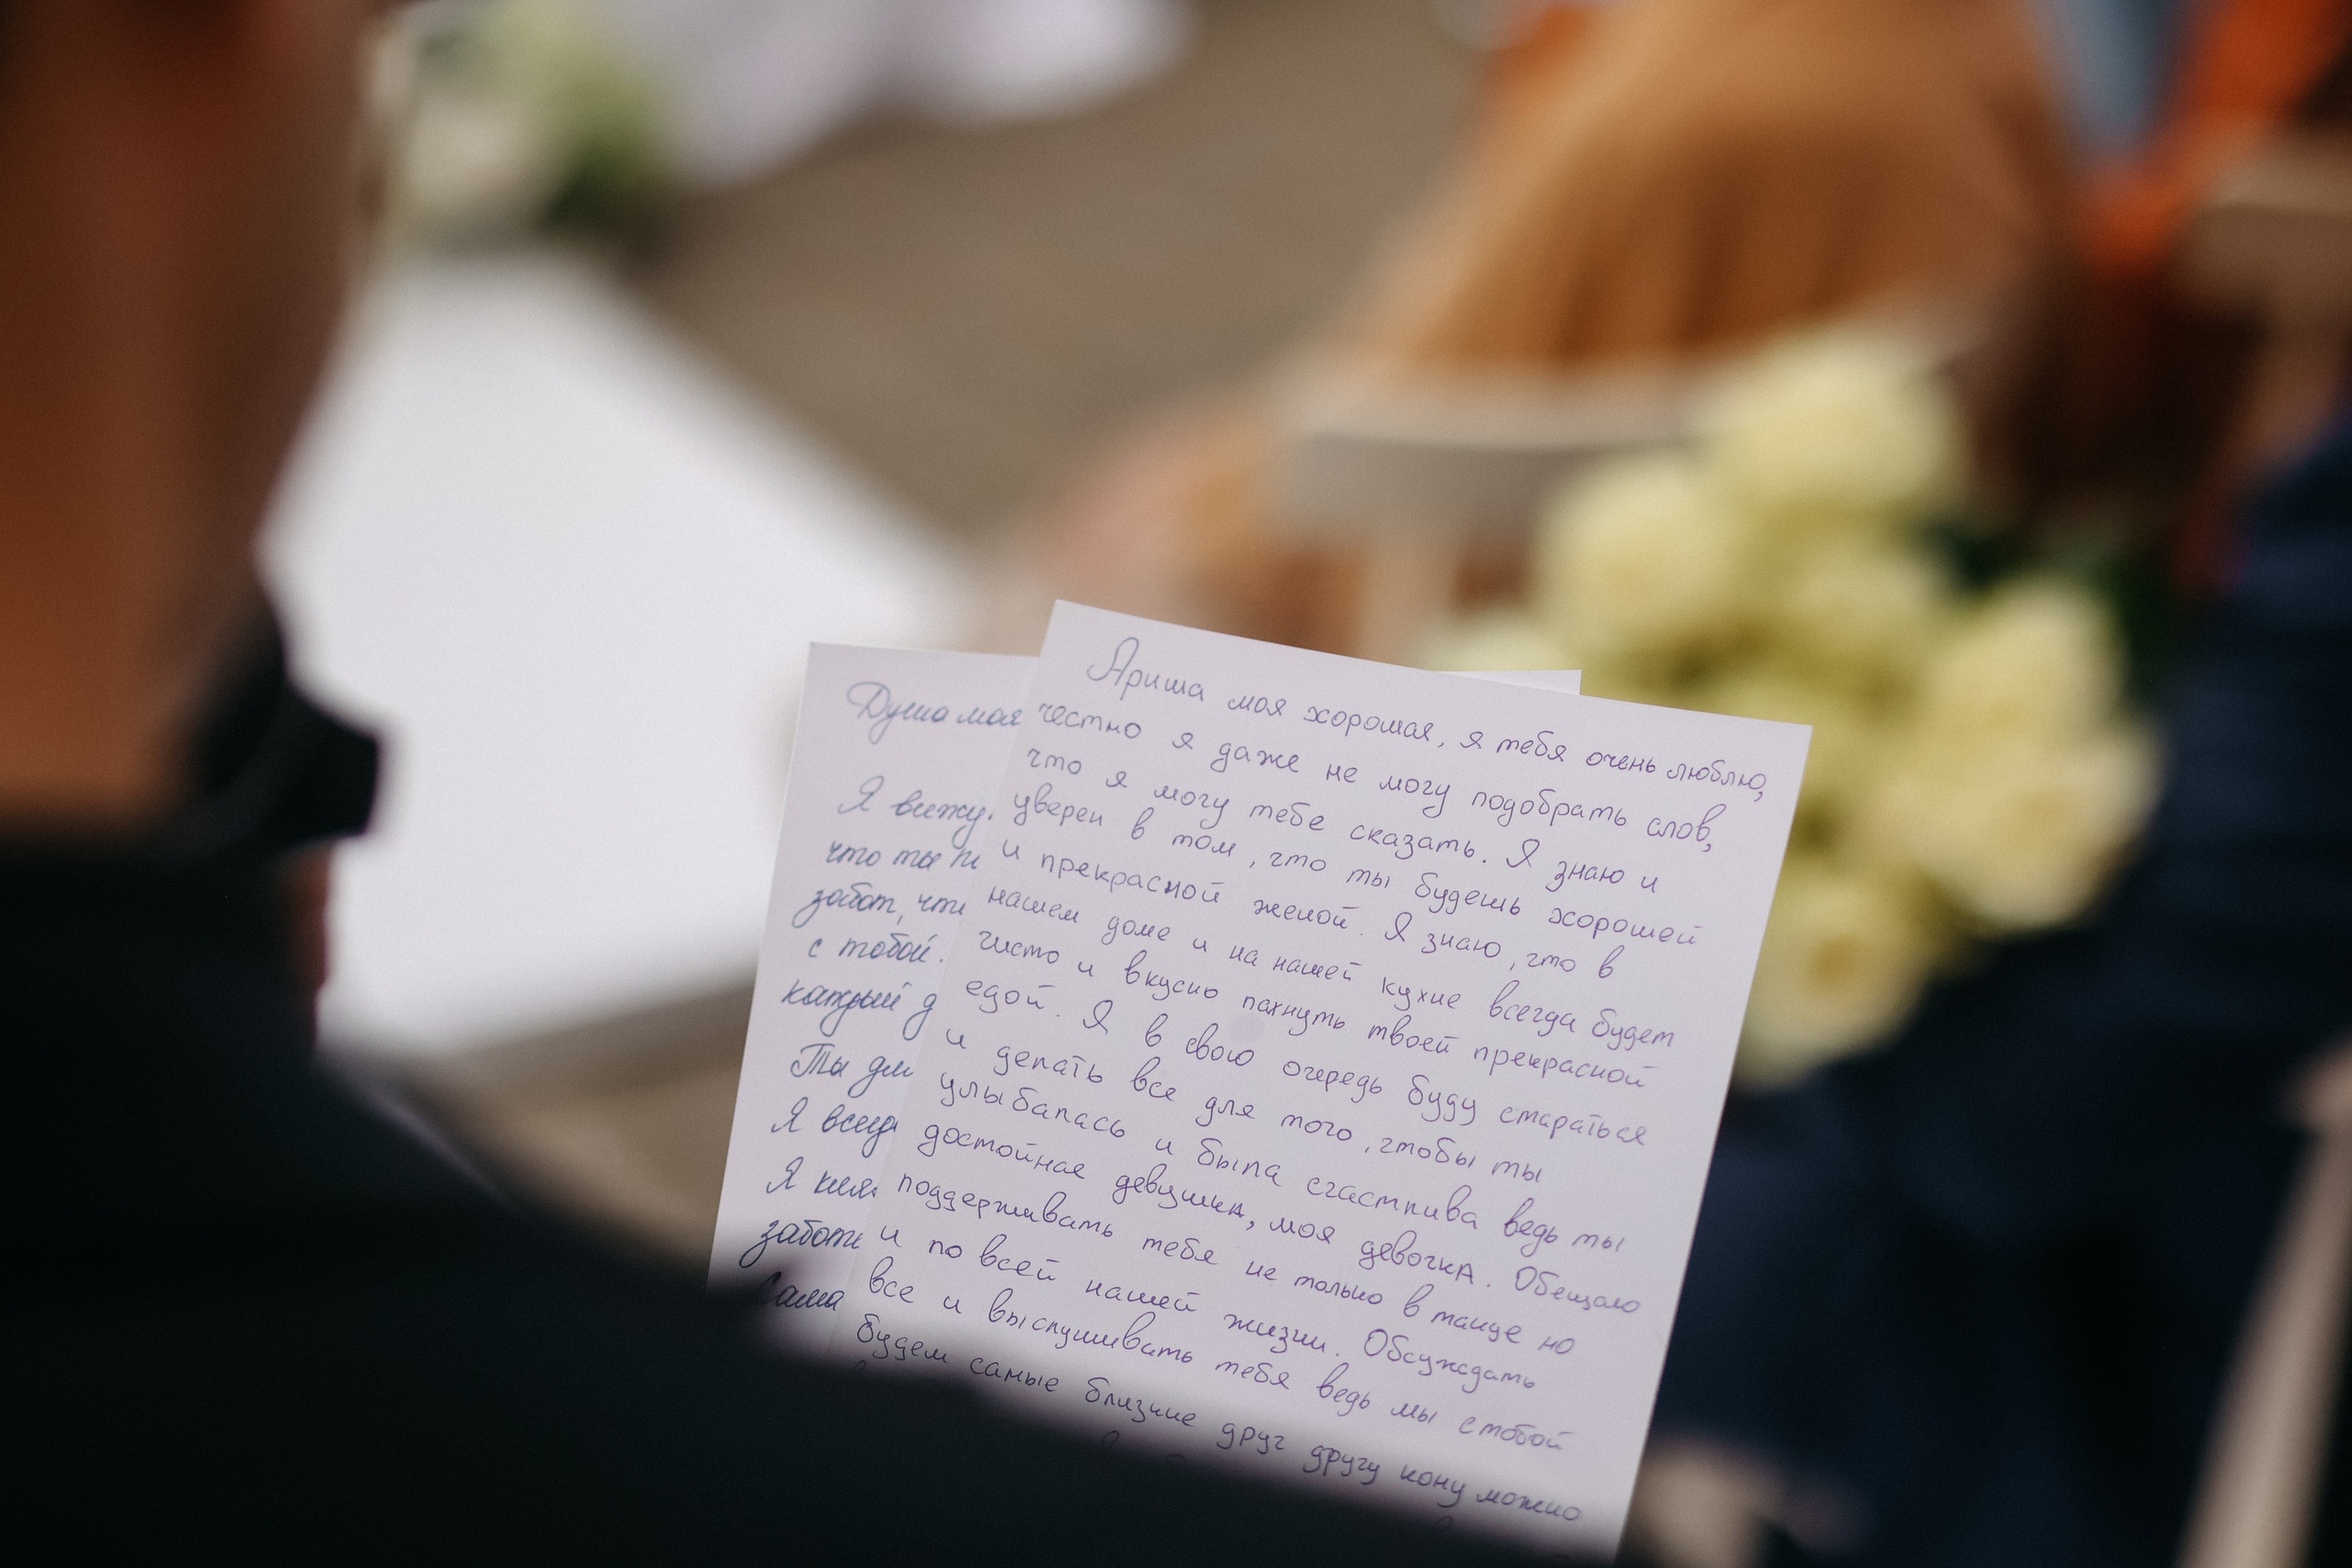 Ариша моя хорошая, я тебя очень люблю,
честно я даже не могу подобрать слов,
что я могу тебе сказать. Я знаю и
уверен в том, что ты будешь хорошей
и прекрасной женой. Я знаю, что в
нашем доме и на нашей кухне всегда будет
чисто и вкусно пахнуть твоей прекрасной
едой. Я в свою очередь буду стараться
и делать все для того, чтобы ты
улыбалась и была счастлива ведь ты
достойная девушка, моя девочка. Обещаю
поддерживать тебя не только в танце но
и по всей нашей жизни. Обсуждать
все и выслушивать тебя ведь мы с тобой
будем самые близкие друг другу кому можно
Душа моя
Я вижу,
что ты
забот, что
с тобой.
каждый д
Ты для
Я всегд
Я
забот
Сама